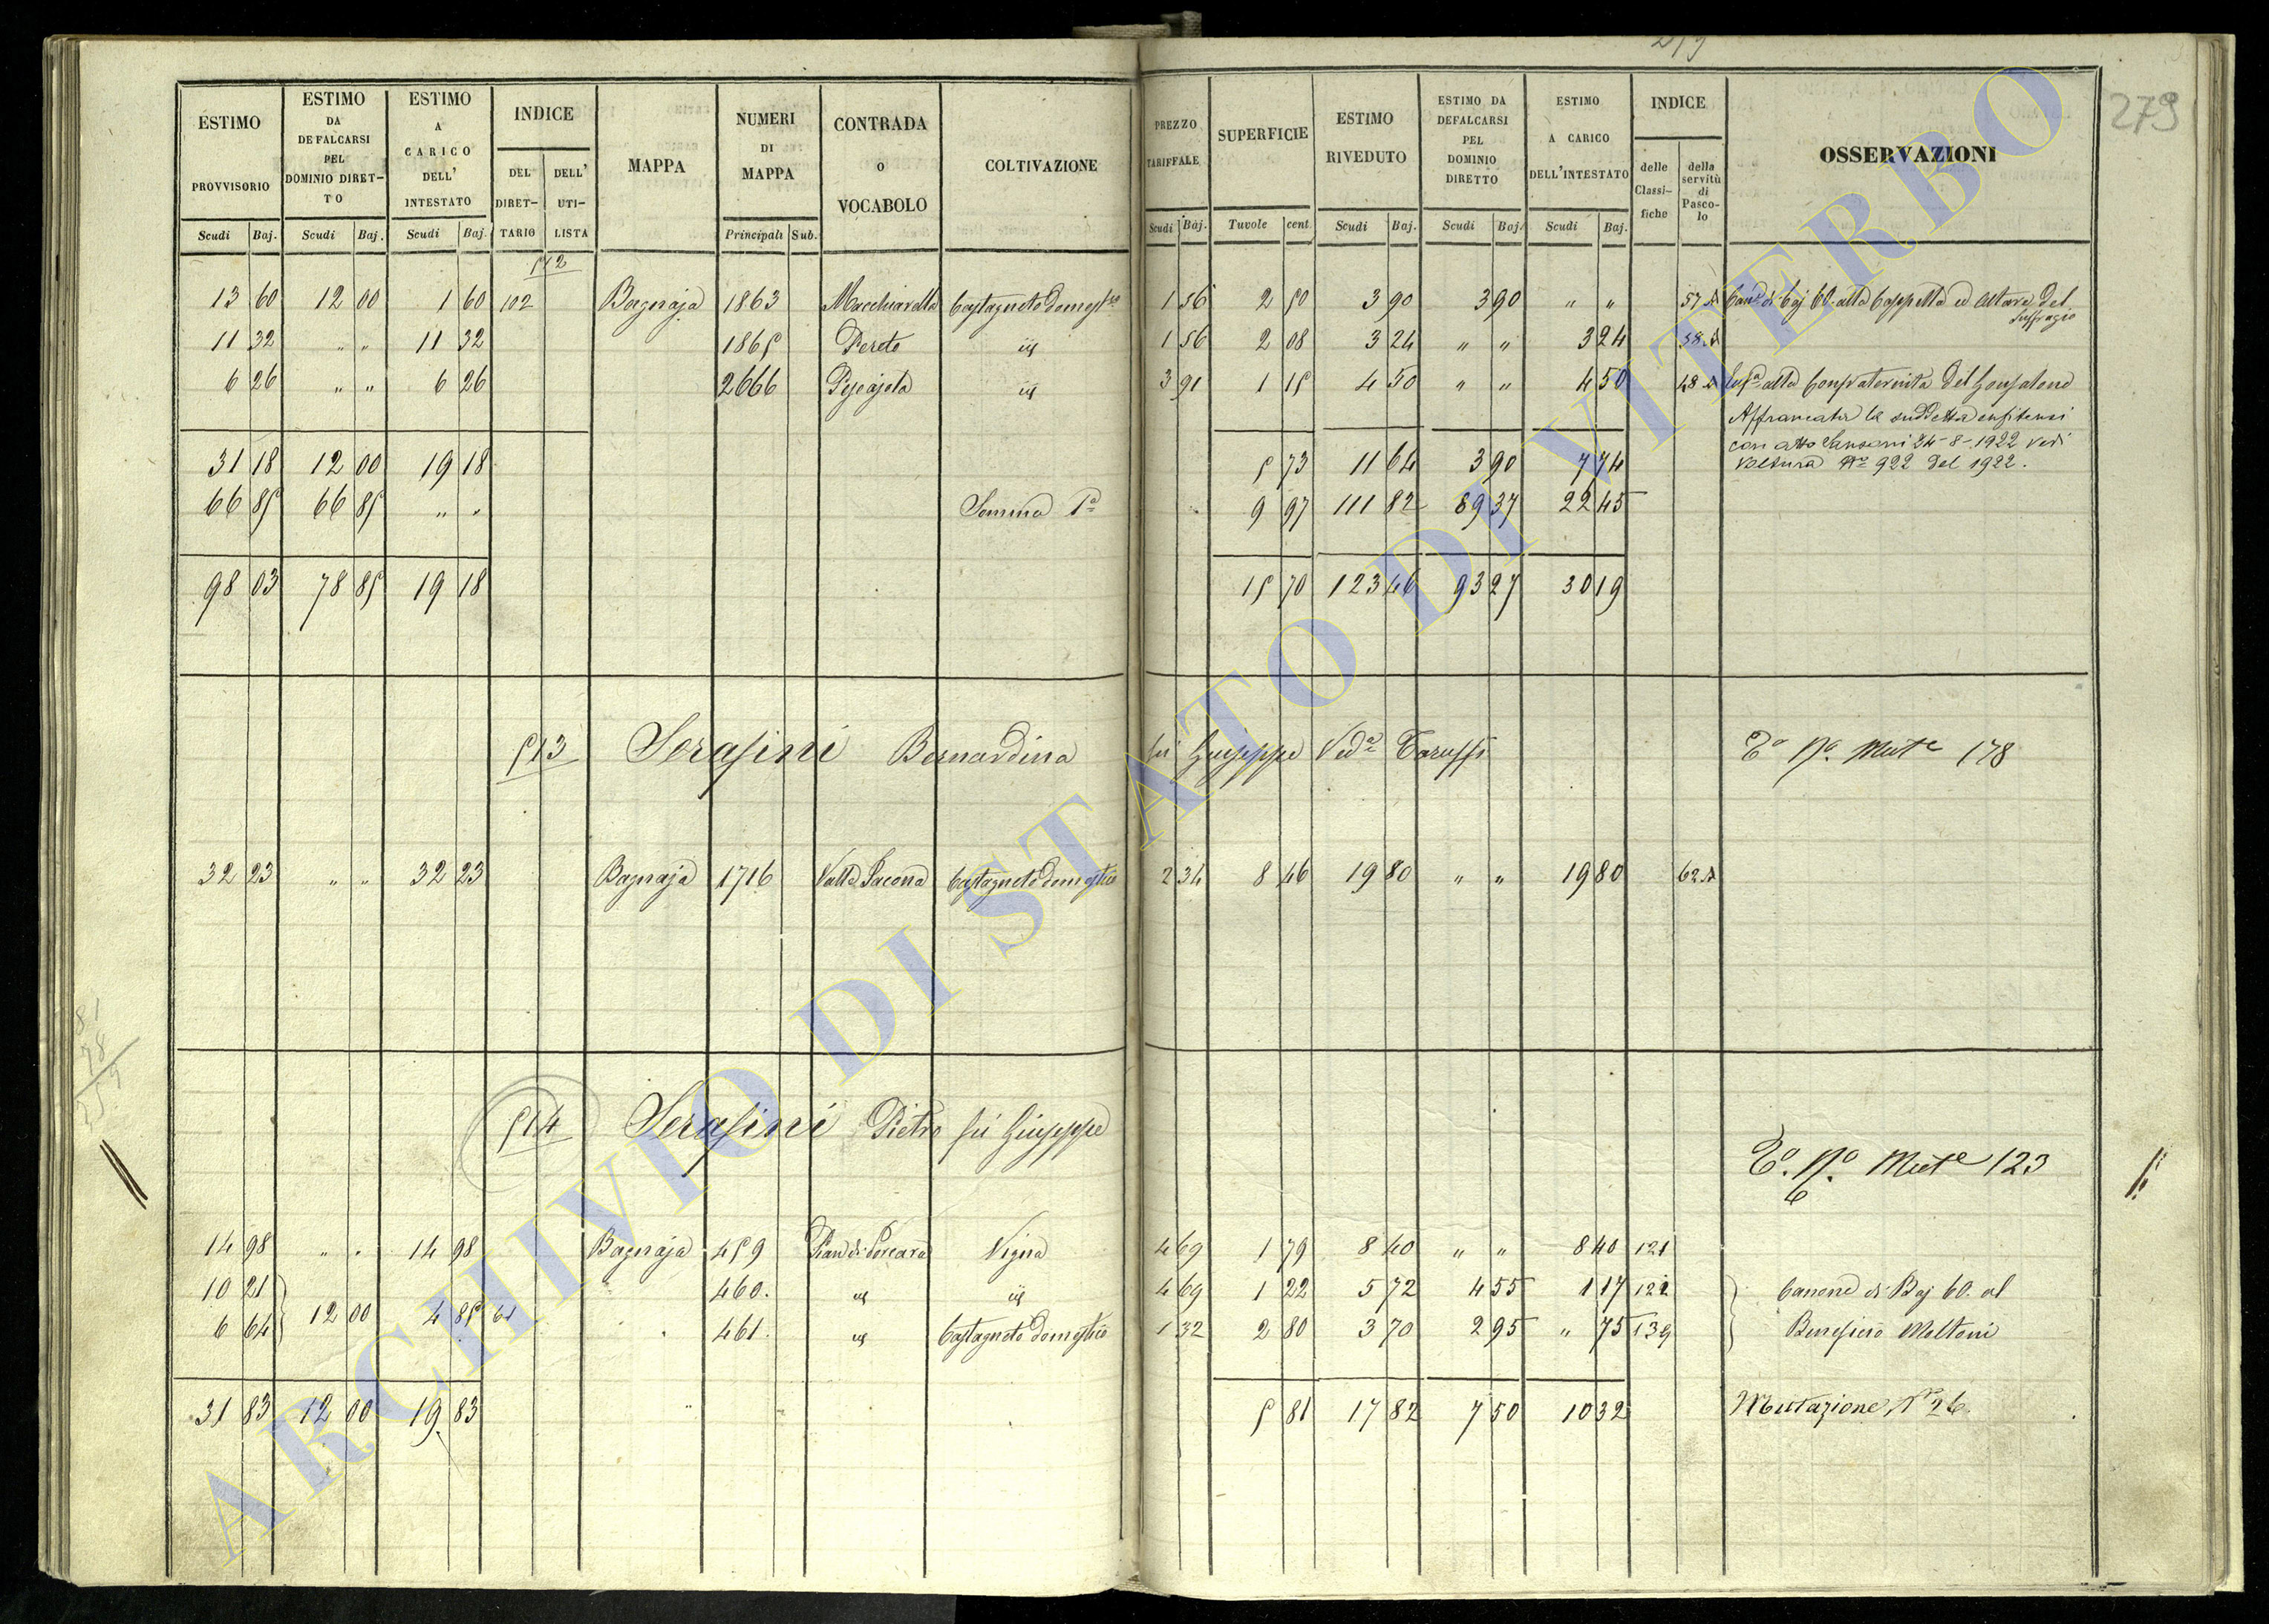 279
ESTIMO PROVVISORIO Scudi Baj.
ESTIMO DA DEFALCARSI PEL DOMINIO DIRET-TO Scudi Baj.
ESTIMO A CARICO DELL' INTESTATO Scudi Baj.
INDICE DEL DIRET-TARIO DELL' UTI-LISTA
MAPPA
NUMERI DI MAPPA Principali Sub.
CONTRADA O VOCABOLO
COLTIVAZIONE
PREZZO TARIFFALE Scudi Baj.
SUPERFICIE Tavole cent
ESTIMO RIVEDUTO Scudi Baj.
ESTIMO DA DEFALCARSI PEL DOMINIO DIRETTO Scudi Baj.
ESTIMO A CARICO DELL'INTESTATO Scudi Baj.
INDICE delle Classi-fiche della servitù di Pasco-lo
OSSERVAZIONI
512
13 60 12 00 1 60 102 Bagnaja 1863 Castagneto domest.co 1 56 2 50 3 90 3 90 " " 57 Can.e di Baj 60. alla Cappella ed Altare del Suffragio
11 32 " " 11 32 1865 Pereto id 1 56 2 08 3 24 " " 3 24 58
6 26 " " 6 26 2666 id 3 91 1 15 4 50 " " 4 50 48 alla Confraternita del Gonfalone
Affrancata la suddetta enfiteusi
con atto Sansoni 24-8-1922 vedi
Voltura N° 922 del 1922.
31 18 12 00 19 18 5 73 11 64 3 90 7 74
66 85 66 85 " " Somma Pa 9 97 111 82 89 37 22 45
98 03 78 85 19 18 15 70 123 46 93 27 30 19
513 Serafini Bernardina fu Giuseppe Ved.a Taruffi Mut.e 178
32 23 " " 32 23 Bagnaja 1716 Castagneto domestico 2 34 8 46 19 80 " " 19 80 62
514 Serafini Pietro fu Giuseppe
Mut.e 123
14 98 " " 14 98 Bagnaja 459 Pian di Porcara Vigna 4 69 1 79 8 40 " " 8 40 121
10 21 460. id id 4 69 1 22 5 72 4 55 1 17 121 Canone di Baj 60. al
6 64 12 00 4 85 61 461. id Castagneto domestico 1 32 2 80 3 70 2 95 " 75 139 Beneficio Meltoni
31 83 12 00 19 83 5 81 17 82 7 50 10 32 Mutazione N° 26.
ARCHIVIO DI STATO DI VITERBO